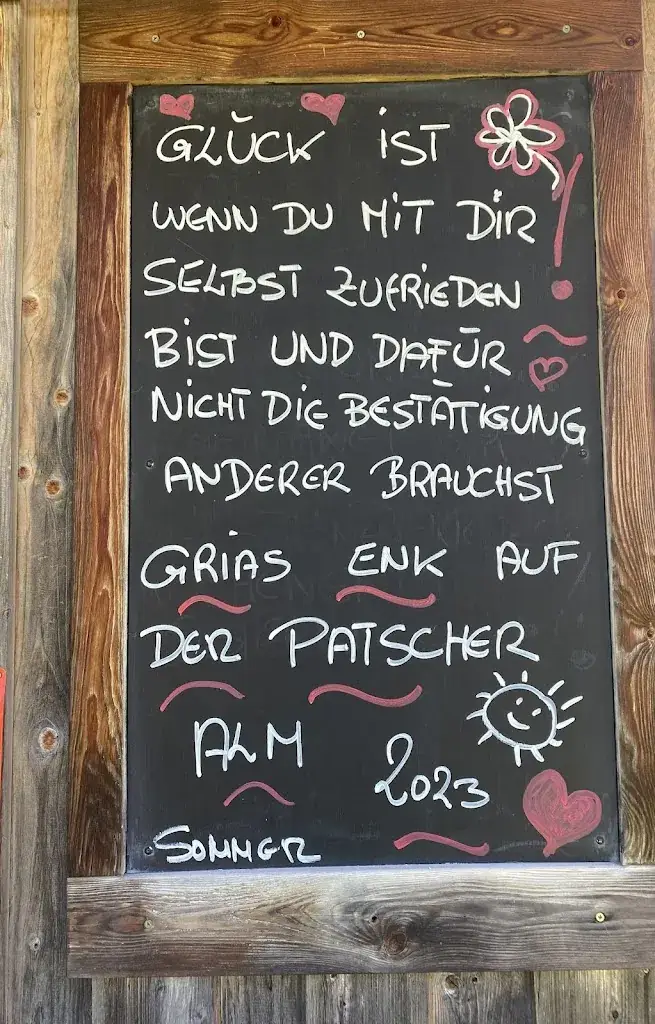 GLÜCK iST
WENN DU MiT DiR
SELBST ZUFRiEDEN
BiST UND DAFÜR
NiCHT DiE BESTÄTiGUNG
ANDERER BRAUCHST
GRiAS ENK AUF
DER PATSCHER
ALM
2023
SOMMER